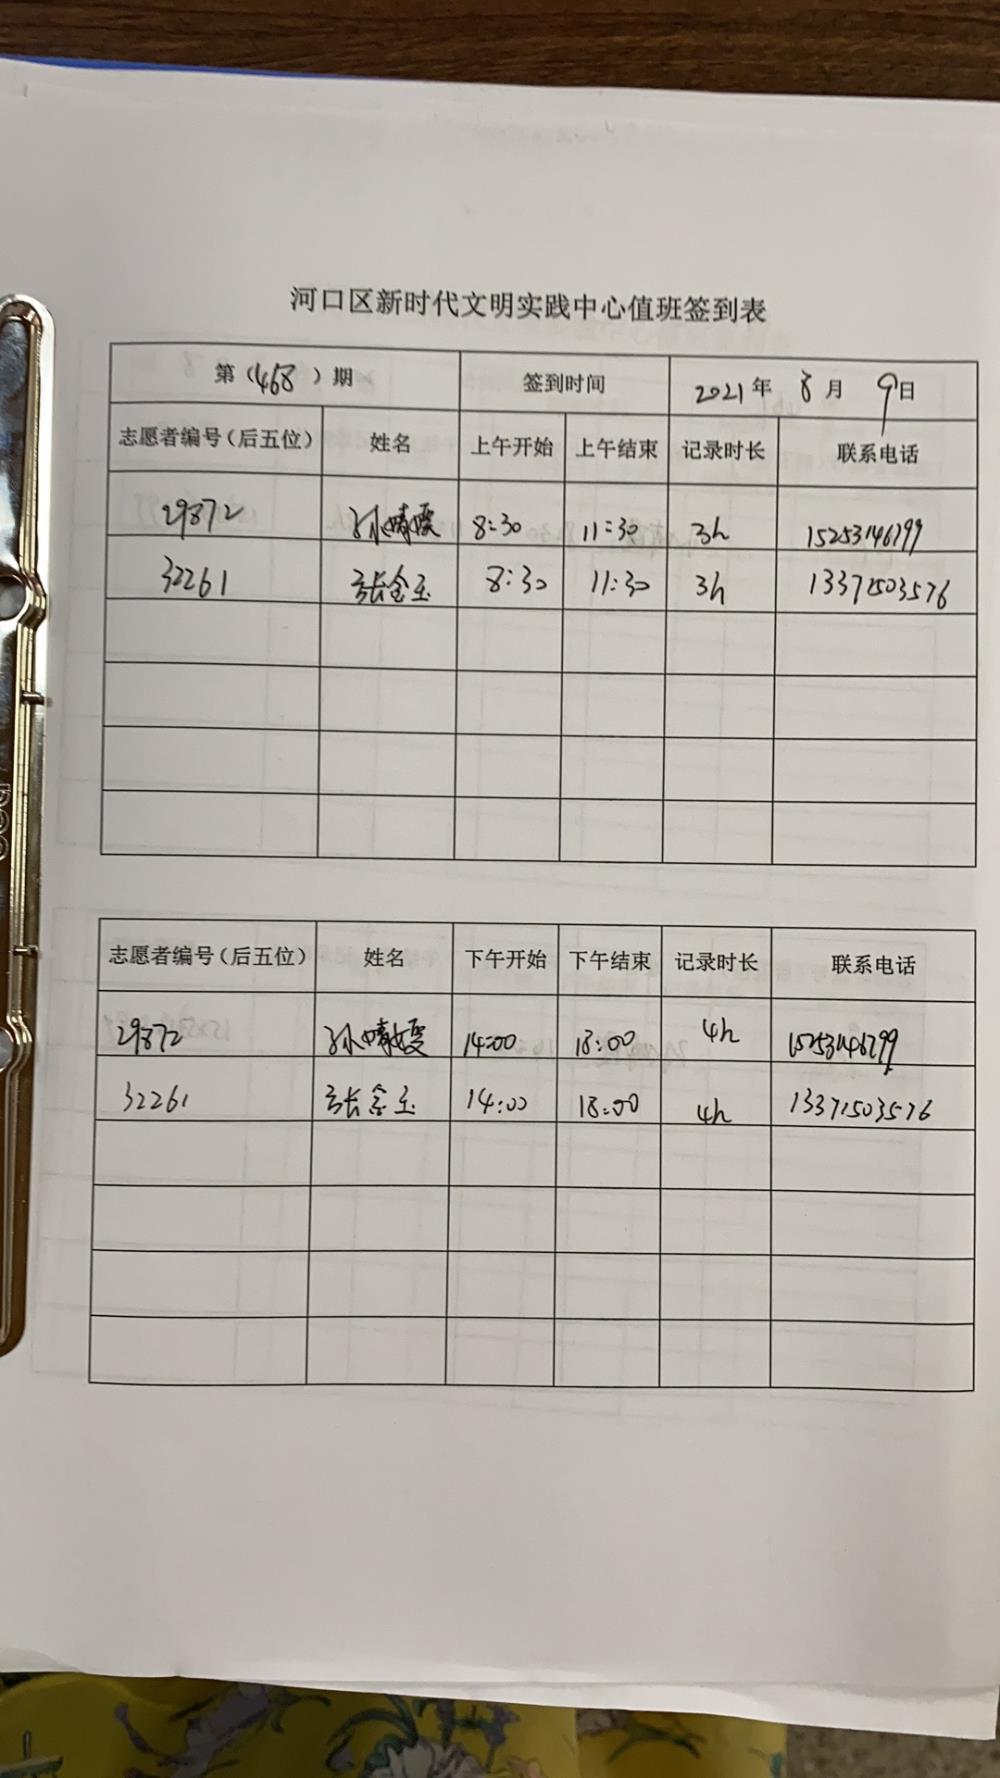 河口区新时代文明实践中心值班签到表
第（468）期 签到时间 2021年 8月 9日
志愿者编号（后五位） 姓名 上午开始 上午结束 记录时长 联系电话
29872 孙婧媛 8:30 11:30 3h 15253146799
32261 张金玉 8:30 11:30 3h 13371503576
志愿者编号（后五位） 姓名 下午开始 下午结束 记录时长 联系电话
29872 孙婧媛 14:00 18:00 4h 15253146799
32261 张金玉 14:00 18:00 4h 13371503576